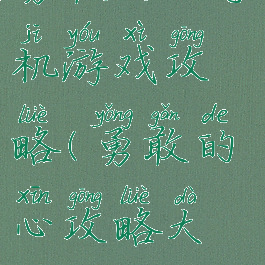 jī yóu xì gōng
机游戏攻
lüè yǒng gǎn de
略(勇敢的
xīn gōng lüè dà
心攻略大